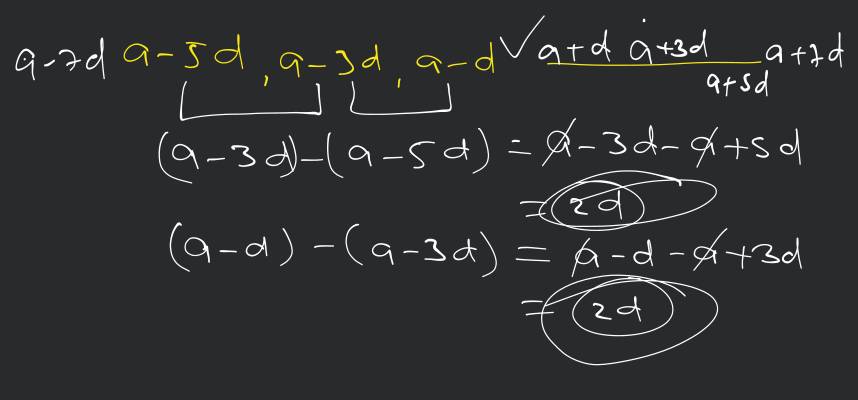 a-7d a-5d, a-3d, a-d √ a+d a+3d a+5d a+7d
(a-3d)-(a-5d) = a-3d-a+5d
= 2d
(a-d) - (a-3d) = a-d-a+3d
= 2d